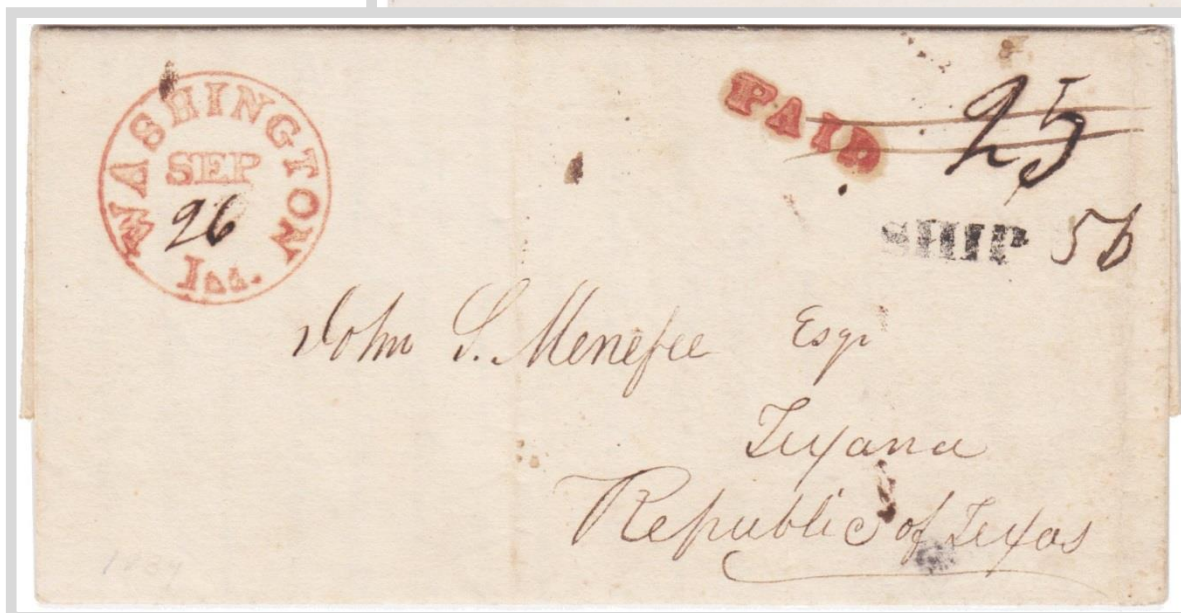 WASHINGTON
SEP
26
Ill.
PAID
25
SHIP 56
John S. Menefee Esqr
Texana
Republic of Texas
1839